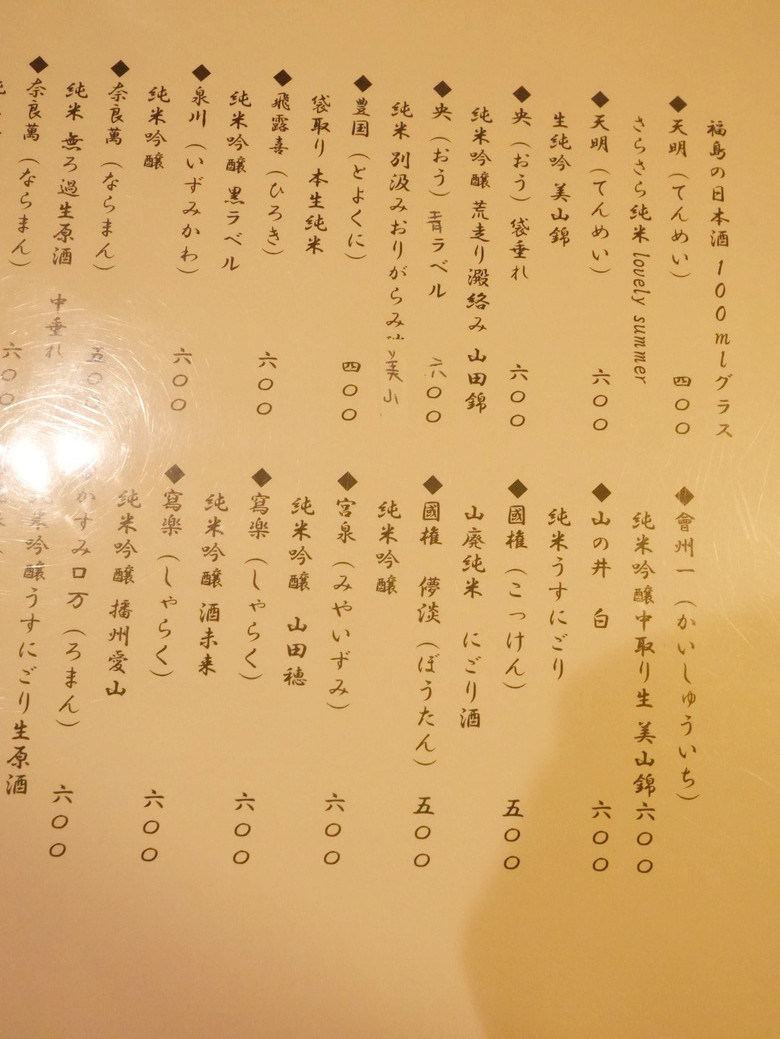 福島の日本酒 100mlグラス
◆天明（てんめい） 四〇〇
さらさら純米 lovely summer
◆天明（てんめい） 六〇〇
生純吟 美山錦
◆央（おう）袋垂れ 六〇〇
純米吟醸 荒走り澱絡み 山田錦
◆央（おう）青ラベル 六〇〇
純米 別汲みおりがらみ 美山
◆豊国（とよくに） 四〇〇
袋取り 本生純米
◆飛露喜（ひろき） 六〇〇
純米吟醸 黒ラベル
◆泉川（いずみかわ） 六〇〇
純米吟醸
◆奈良萬（ならまん） 五〇〇
純米 無ろ過生原酒 中垂れ
◆奈良萬（ならまん） 六〇〇
◆會州一（かいしゅういち）
純米吟醸中取り生 美山錦 六〇〇
◆山の井 白 六〇〇
純米うすにごり
◆國権（こっけん） 五〇〇
山廃純米 にごり酒
◆國権 儚淡（ぼうたん） 五〇〇
純米吟醸
◆宮泉（みやいずみ） 六〇〇
純米吟醸 山田穂
◆寫楽（しゃらく） 六〇〇
純米吟醸 酒未来
◆寫楽（しゃらく） 六〇〇
純米吟醸 播州愛山
かすみロ万（ろまん） 六〇〇
純米吟醸うすにごり生原酒